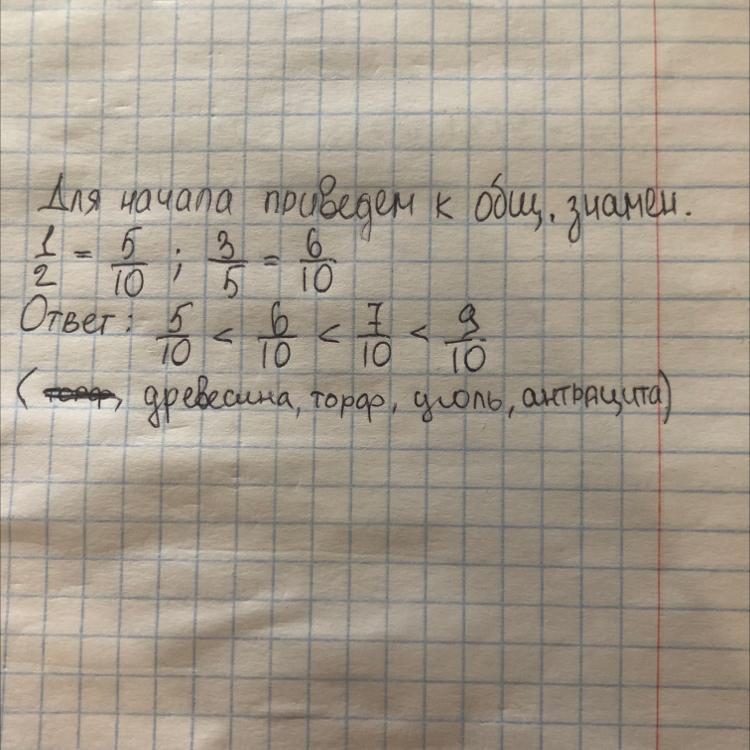 Для начала приведем к общ. знамен.
1/2 = 5/10 ; 3/5 = 6/10
Ответ: 5/10 < 6/10 < 7/10 < 9/10
(торф, древесина, торф, уголь, антрацита)